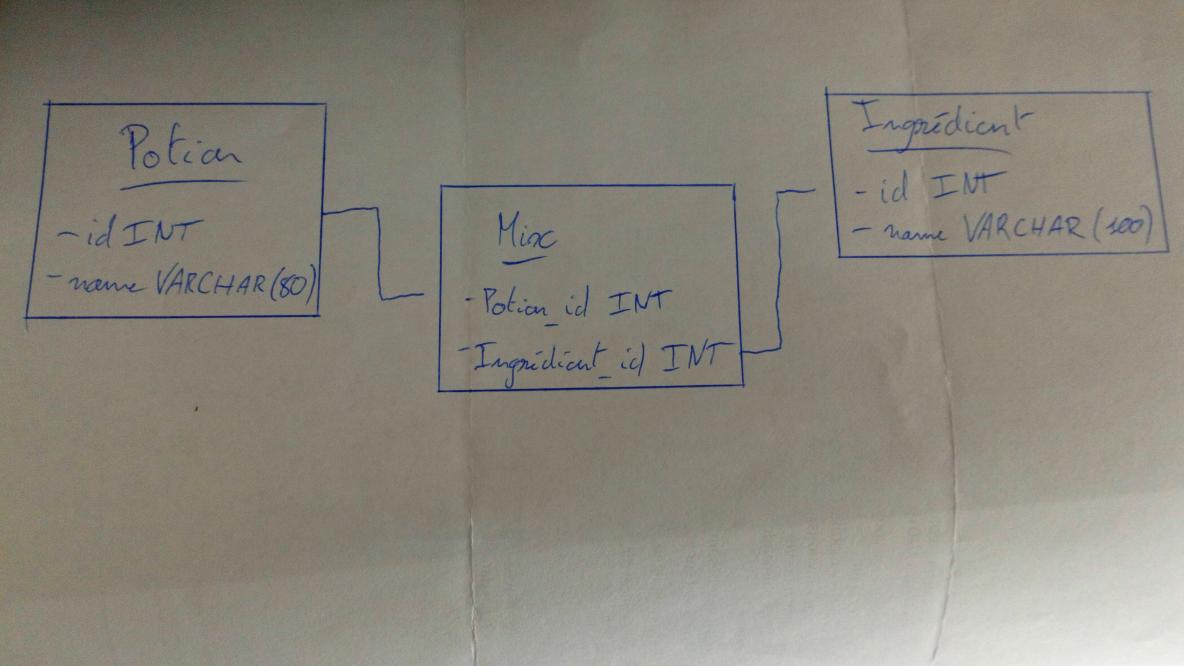 Potion
- id INT
- name VARCHAR(80)
Mix
- Potion_id INT
- Ingrédient_id INT
Ingrédient
- id INT
- name VARCHAR(100)